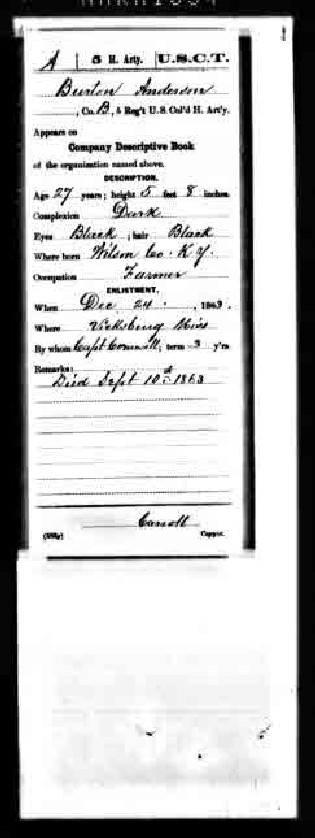 A | 5 H. Arty. | U.S.C.T.
Burton Anderson
, Co. B, 5 Reg't U.S. Col'd H. Art'y.
Appears on
Company Descriptive Book
of the organization named above.
DESCRIPTION.
Age 27 years; height 5 feet 8 inches.
Complexion Dark
Eyes Black ; hair Black
Where born Wilson Co. K Y.
Occupation Farmer
ENLISTMENT.
When Dec 24 , 1863.
Where Vicksburg Miss
By whom Capt ; term 3 y'rs.
Remarks:
Died Sept 10th 1863
Copyist.